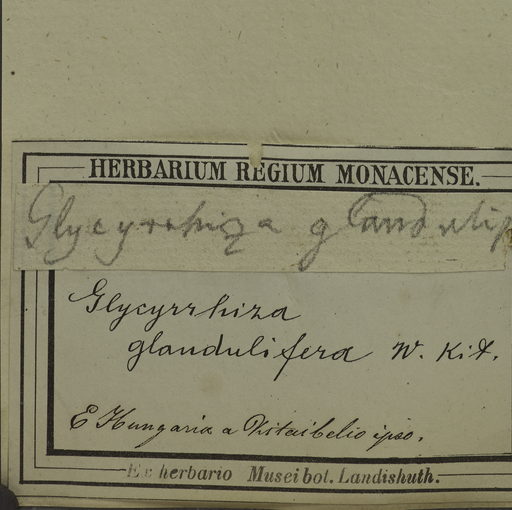 HERBARIUM REGIUM MONACENSE.
Glycyrrhiza glandulif
Glycyrrhiza
glandulifera W. Kit.
E Hungaria a Kitaibelio ipso.
Ex herbario Musei bot. Landishuth.